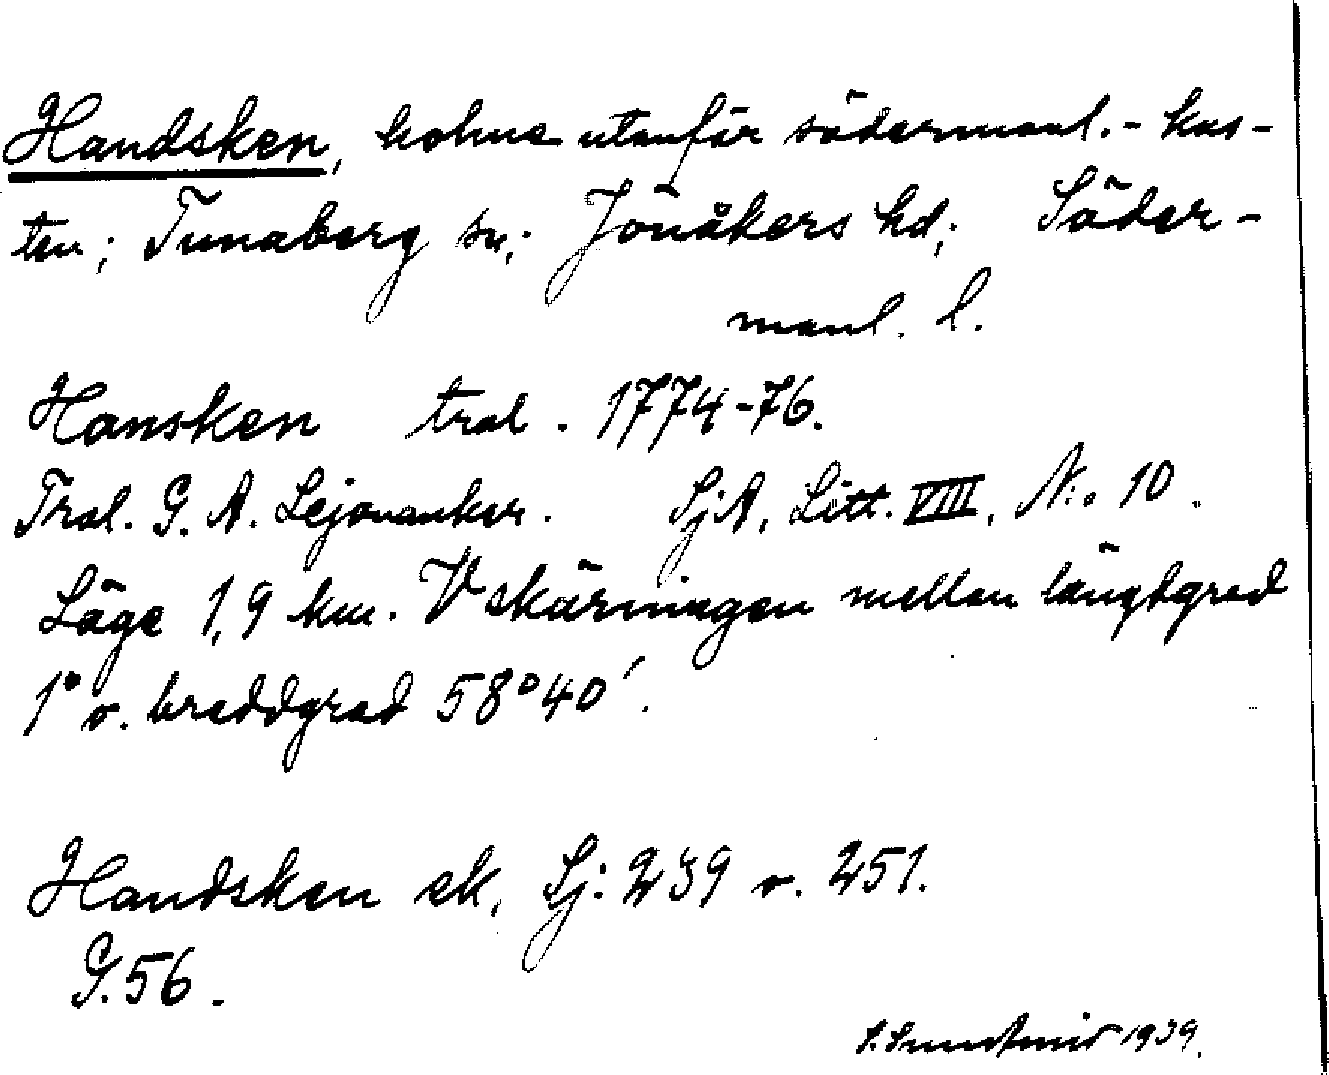 Handsken, holme utanför södermanl.- kus-
ten; Tunaberg sn; Jönåkers hd; Söder-
manl. l.
Hansken trol. 1774-76.
Trol. G. A. Lejonanker. SjA, Litt. VIII, N:o 10.
Läge 1,9 km. V skärningen mellan längdgrad
1° o. breddgrad 58°40'.
Handsken ek. Sj: 239 o. 251.
G. 56.
1939.